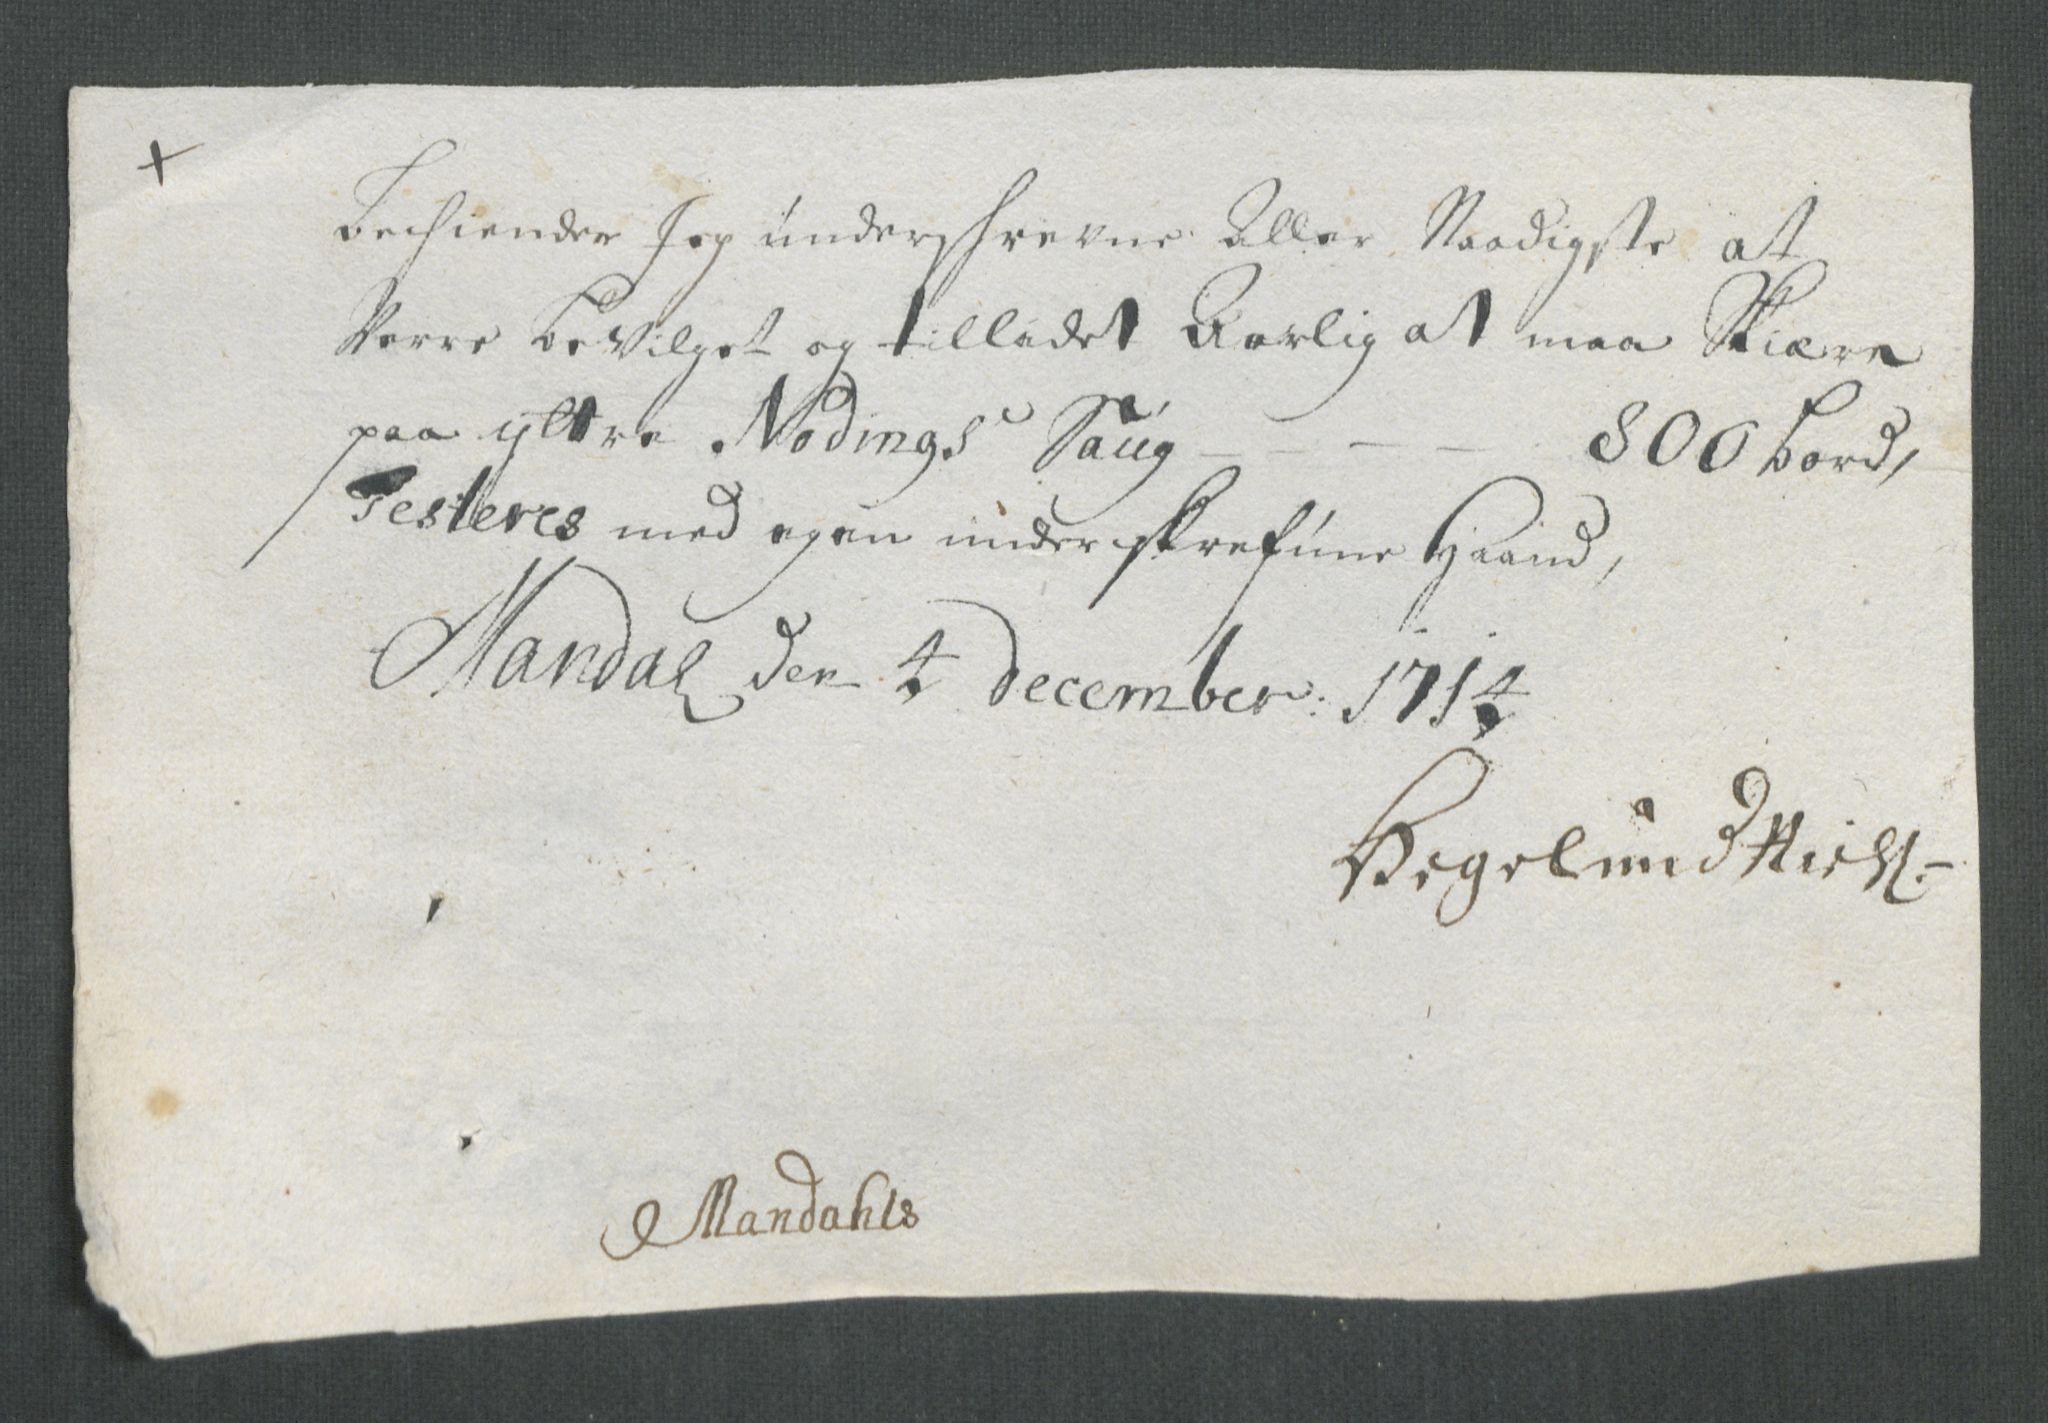 +
Bechiender Jeg underschrevne Aller Naadigste at
Verre bevilget og tilladet Aarlig at maa Skiære
paa yttre Nodings Saug - - - - 800 bord,
Testeres med egen underskrefune Haand,
Mandal den 4 december: 1714
Hegelund
Mandahls